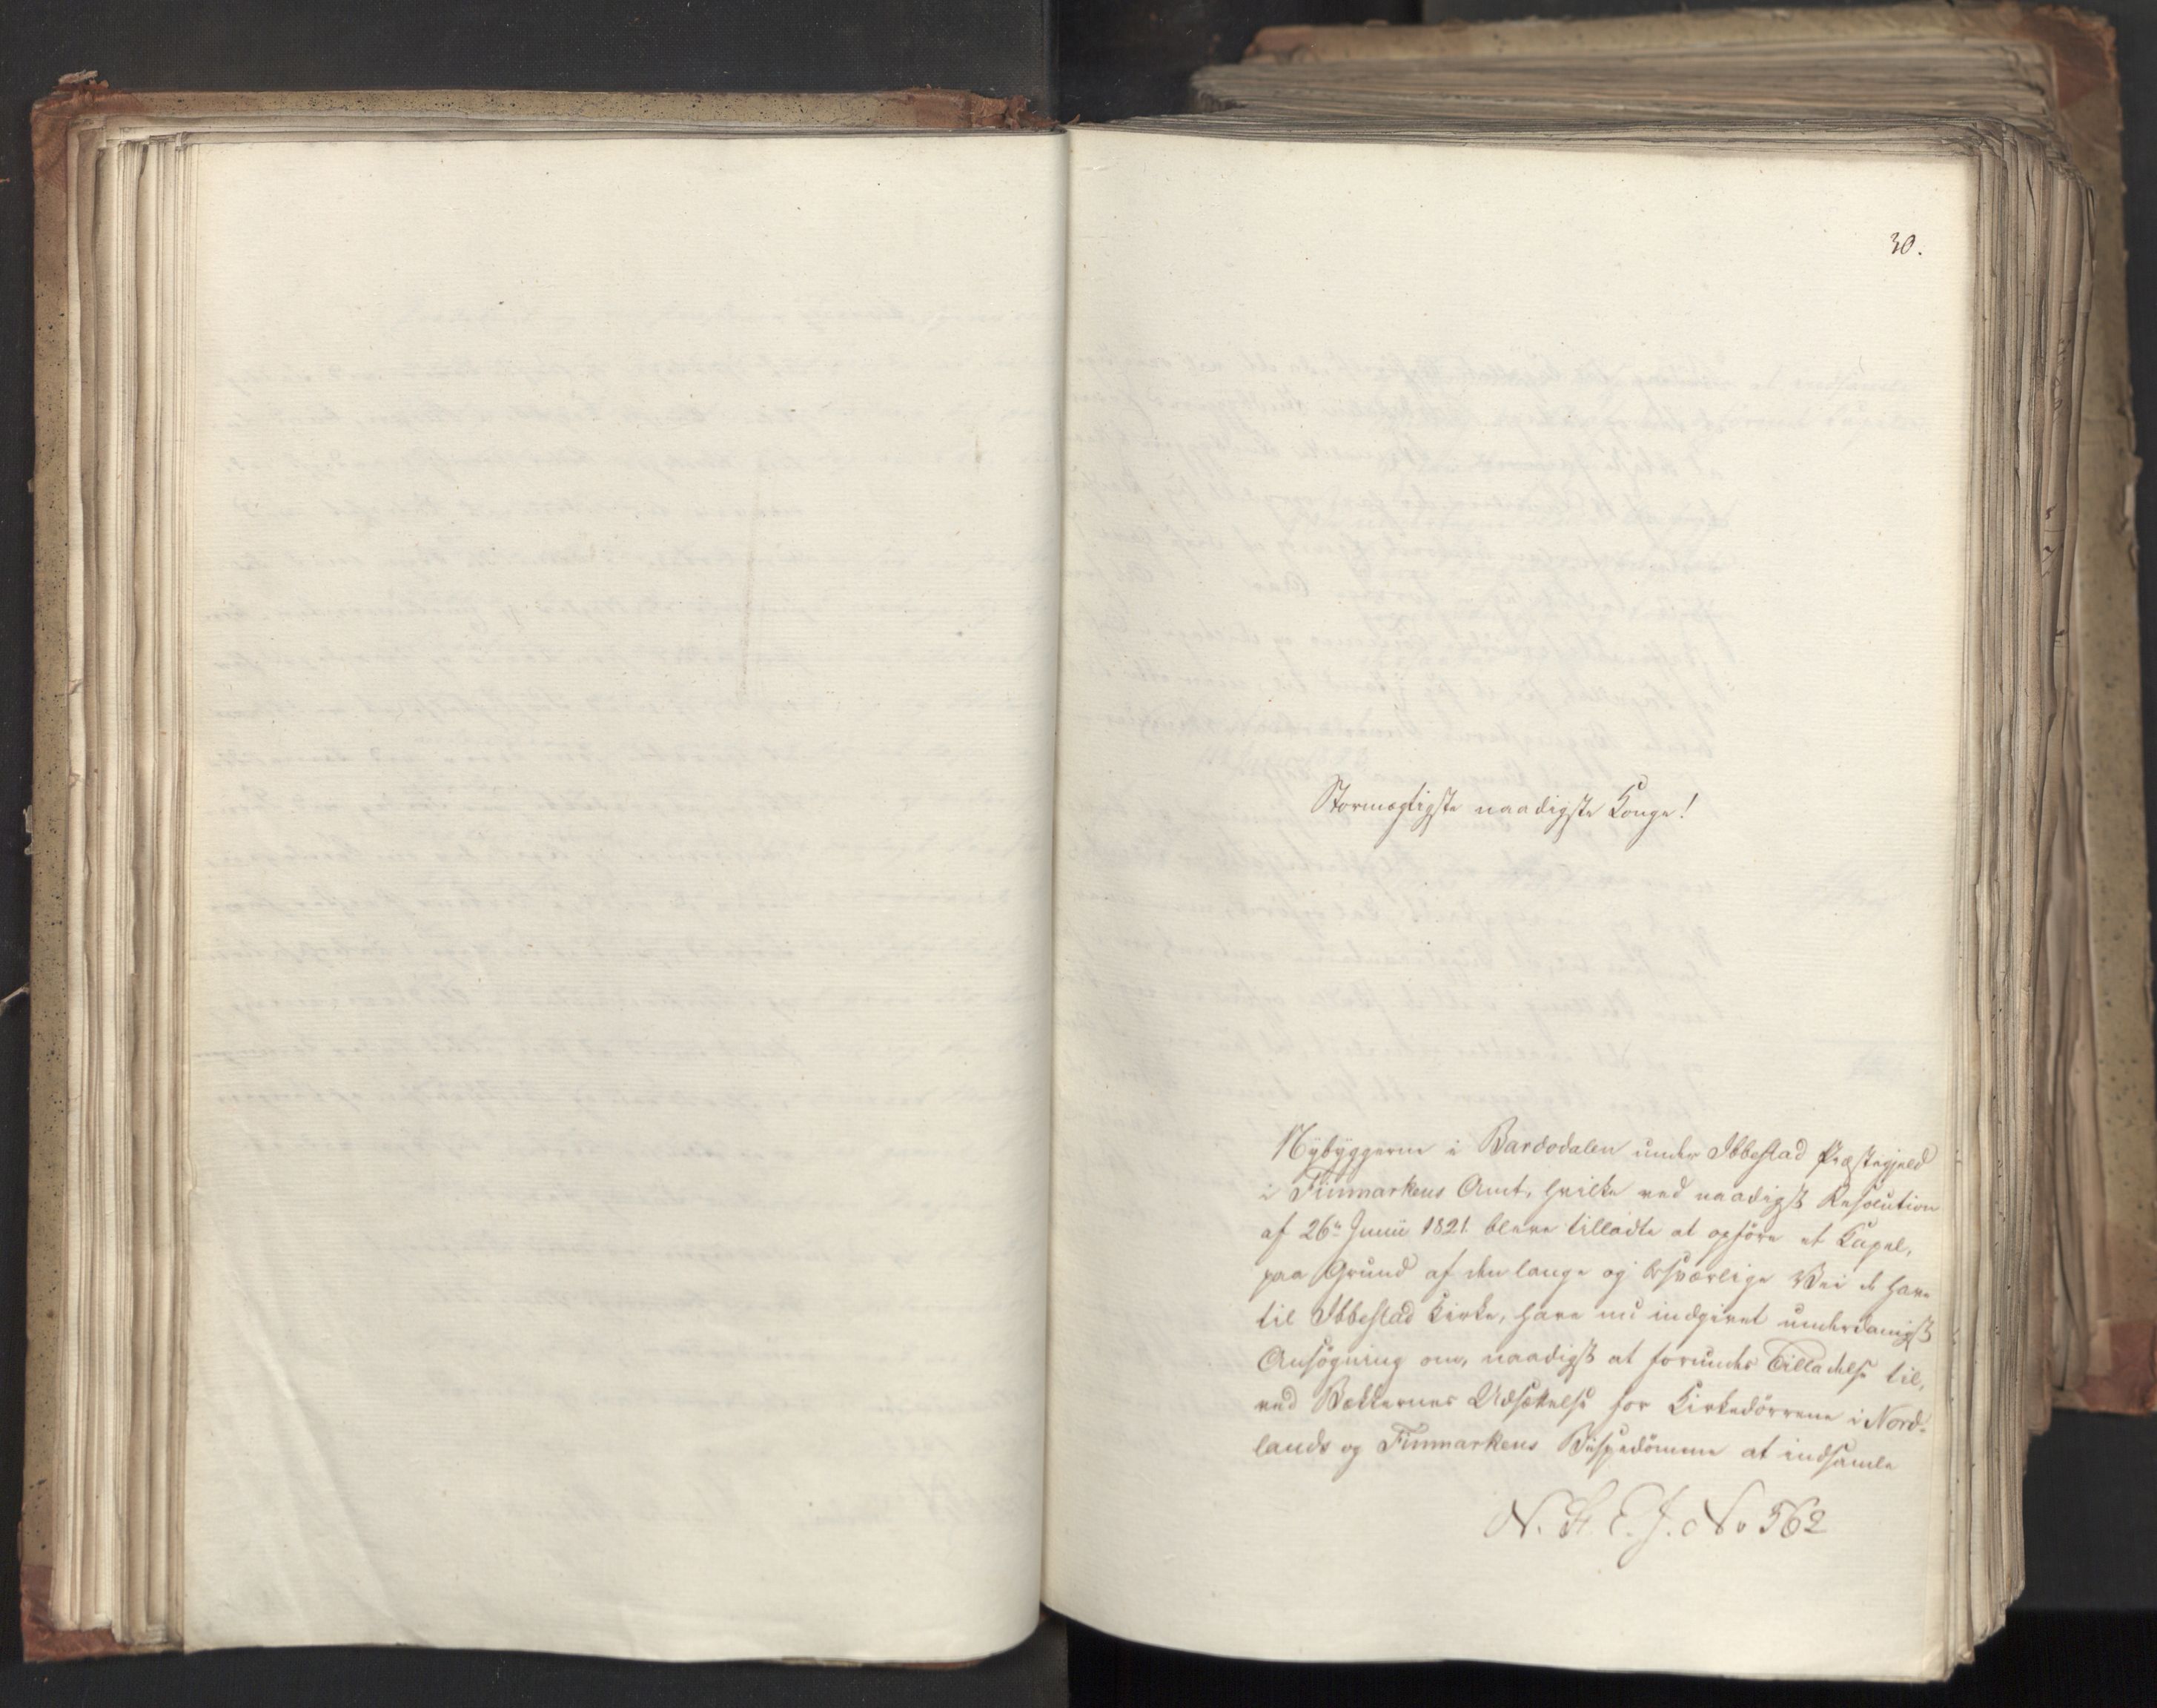 30.
Stormægtigste naadigste Konge!
Nÿbÿggerne i Bardodalen under Ibbestad Præstegjeld
i Finmarkens Amt, hvilke ved naadigst Resolution
af 26de Junii 1821 bleve tilladte at opføre et Kapel,
paa Grund af den lange og besværlige Vei de have
til Ibbestad Kirke, have nu indgivet underdanigst
Ansøgning om, naadigst at forundes Tilladelse til,
ved Bækkernes Udsættelse for Kirkedørrene i Nord-
lands og Finmarkens Bispedømme at indsamle
N. St. E. J. No 562